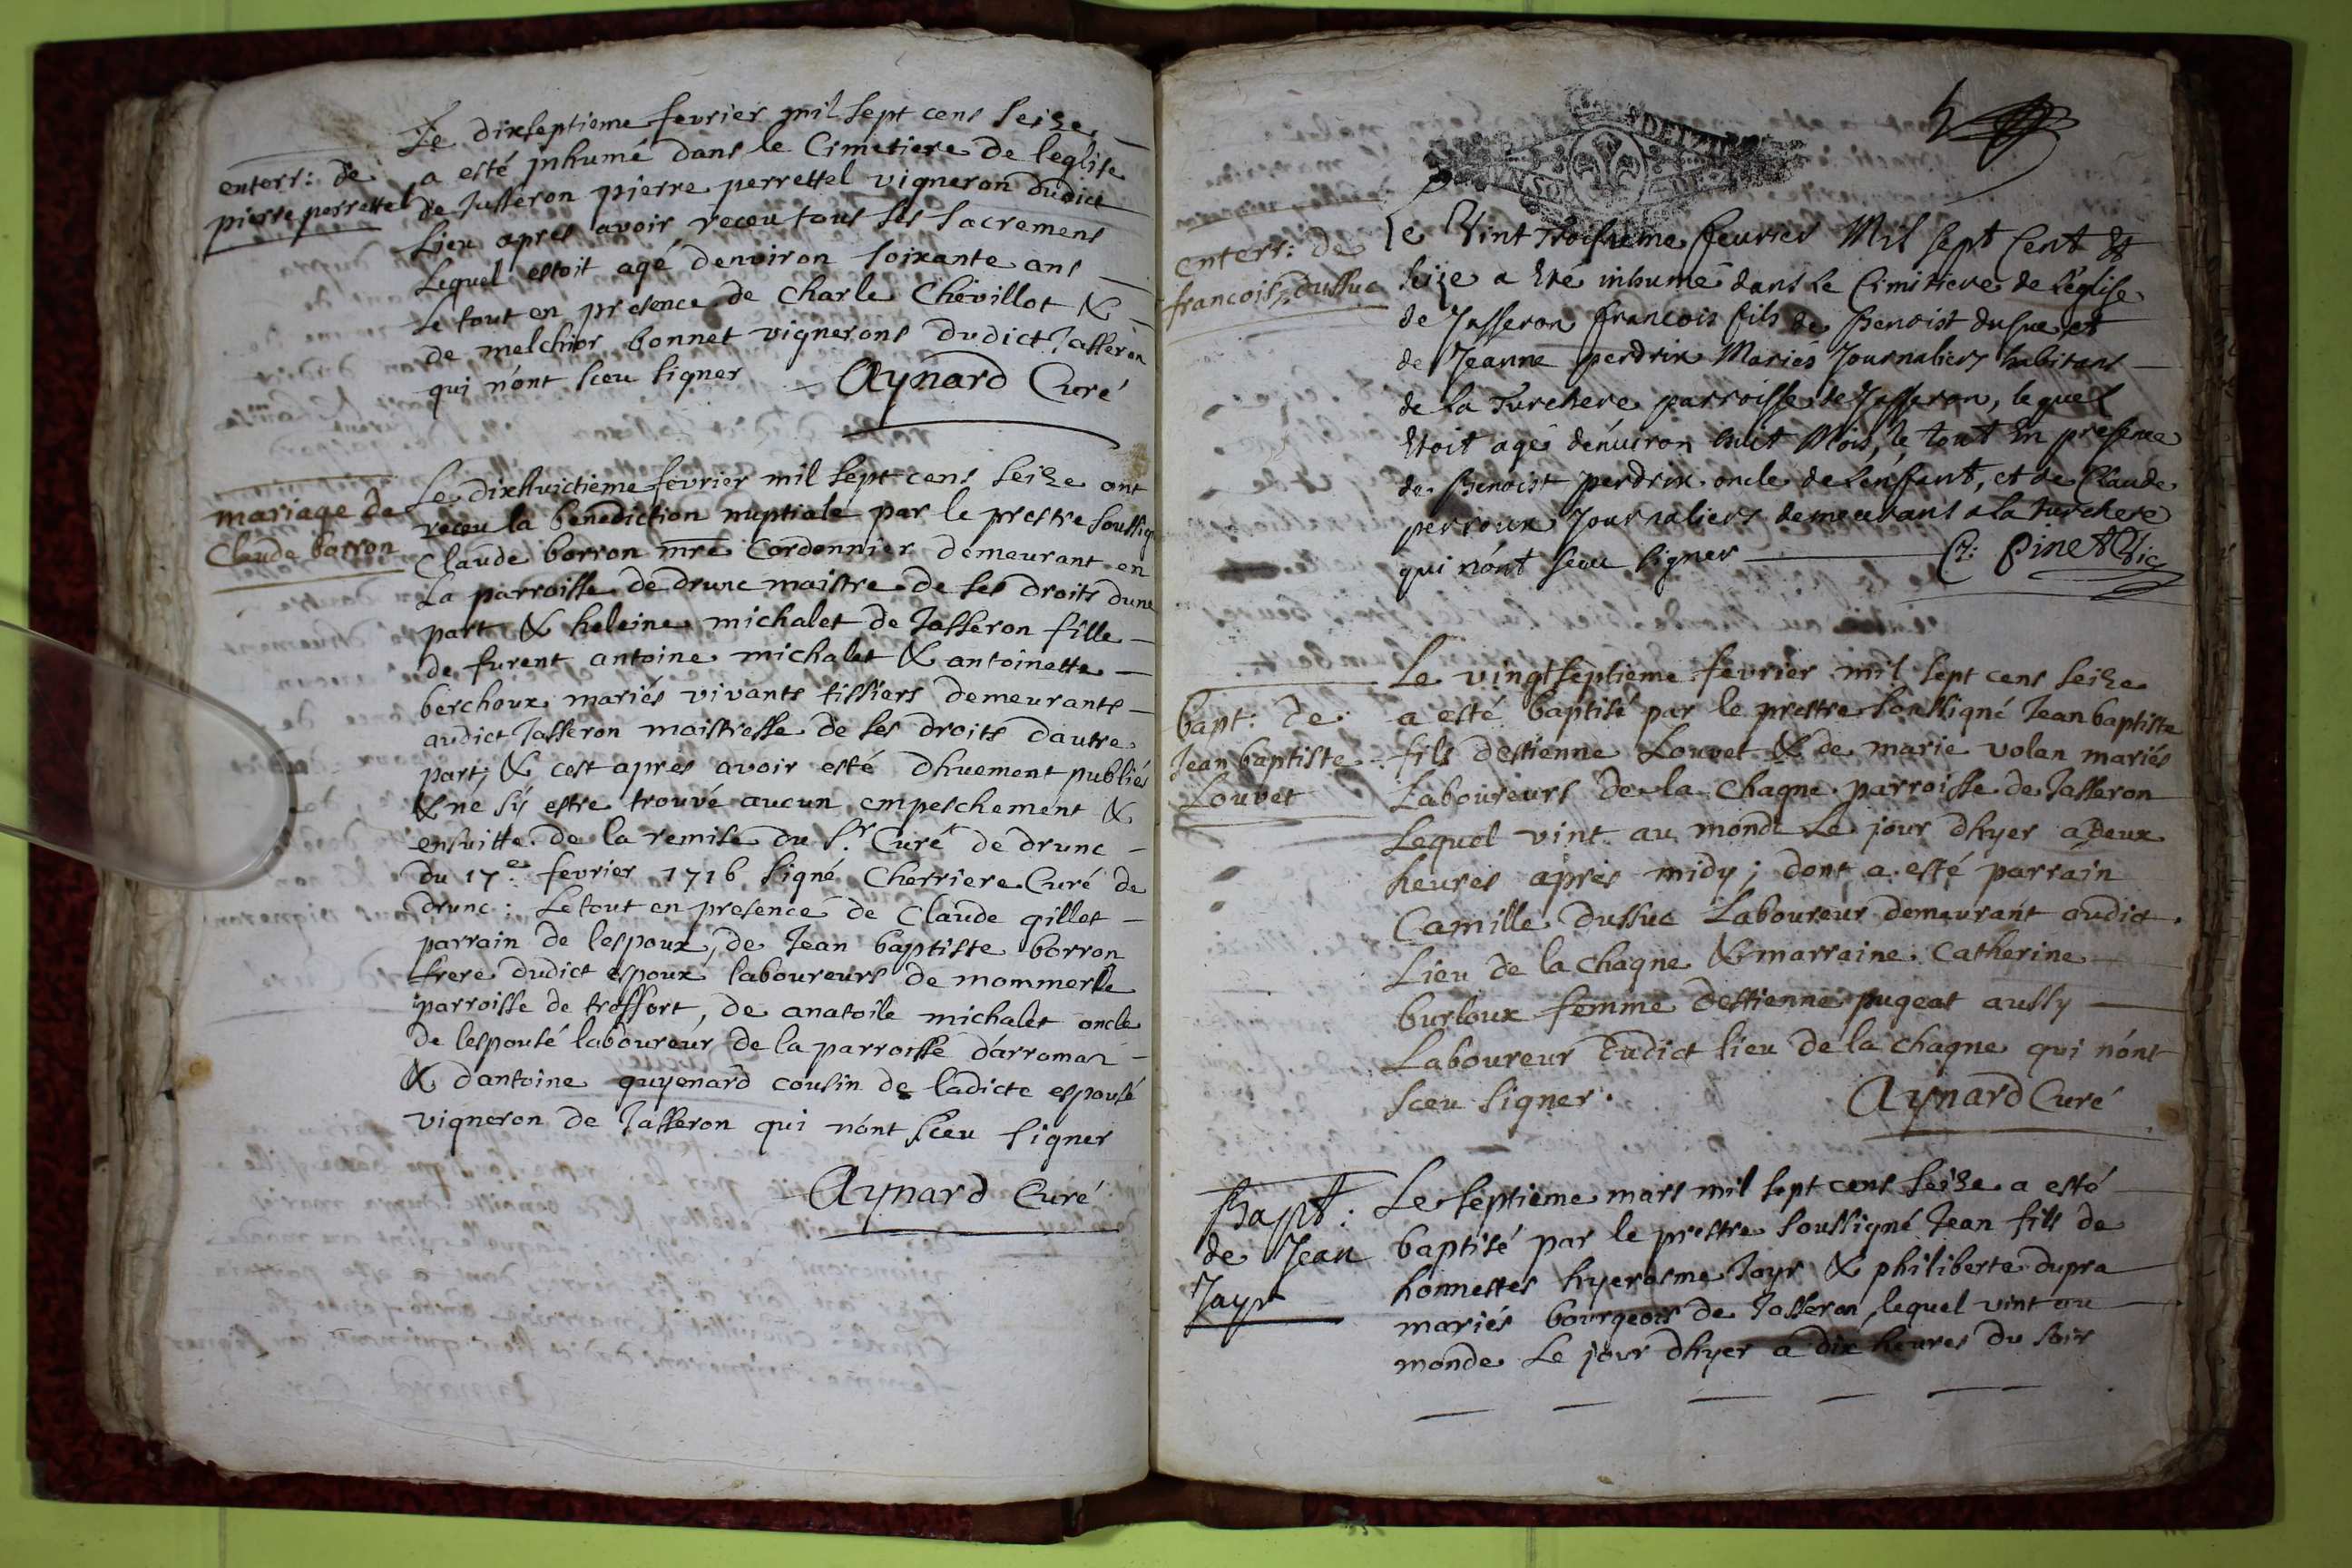 Le dixseptieme fevrier mil sept cens seize
enterr: de
pierre perrettel
a esté jnhumé dans le Cimetiere de leglise
de Jasseron pierre perrettel vigneron dudict
lieu apres avoir receu tous les sacremens
Lequel estoit agé denviron soixante ans
Le tout en presence de Charle Chevillot &
de melchior bonnet vignerons dudict Jasseron
qui nont sceu signer Aynard Curé
mariage de
Claude borron
Le dixhuictieme fevrier mil sept cens seize ont
receu la benediction nuptiale par le prestre soussig
Claude borron mre Cordonnier demeurant en
La parroisse de drunc maistre de ses droits dune
part & heleine michalet de Jasseron fille
de furent antoine michalet & antoinette
berchoux mariés vivants tissiers demeurants
audict Jasseron maistresse de ses droits dautre
part; & cest apres avoir esté dhuement publiés
& ne sÿ estre trouvé aucun empeschement &
ensuitte de la remise du Sr. Curé de drunc
du 17e. fevrier 1716 signé Cherriere Curé de
drunc: Le tout en presence de Claude gillet
parrain de lespoux, de Jean baptiste borron
frere dudict espoux laboureurs de mommerle
parroisse de treffort, de anatoile michalet oncle
de lespousé laboureur de la parroisse d'arromas
& dantoine guyenard cousin de ladicte espousé
vigneron de Jasseron qui n'ont sceu signer
Aynard Curé
enterr: de
francois dussuc
Le Vint troisieme feurier Mil sept Cent et
seize a été inhumé dans le Cimitiere de L'église
de Jasseron francois fils de Benoist dusuc et
de Jeanne perdrix Mariés Journaliers habitans
de La Turchere parroisse de Jasseron, lequel
étoit agé d'enuiron huit Mois, le tout en presence
de Benoist perdrix oncle de L'enffant, et de Claude
perroux Journaliers demeurans a la turchere
qui n'ont sceu signer C: Pinet Vic
bapt: de
Jean baptiste
Louvet
Le vingtseptieme fevrier mil sept cens seize
a esté baptisé par le prestre soussigné Jean baptiste
fils destienne Louvet & de marie volan mariés
Laboureurs de la Chagne parroisse de Jasseron
Lequel vint au monde le jour dhyer a deux
heures apres midy; dont a esté parrain
Camille dussuc Laboureur demeurant audict
Lieu de la Chagne & marraine Catherine
burloux femme destienne pugeat aussy
Laboureur dudict lieu de la Chagne qui n'ont
sceu signer. Aynard Curé
Bapt:
de Jean
Jayr
Le septieme mars mil sept cens seize a esté
baptisé par le prestre soussigné Jean fils de
honnestes hyerosme Jayr & philiberte dupra
mariés bourgeois de Jasseron, lequel vint au
monde Le jour dhyer a dix heures du soir